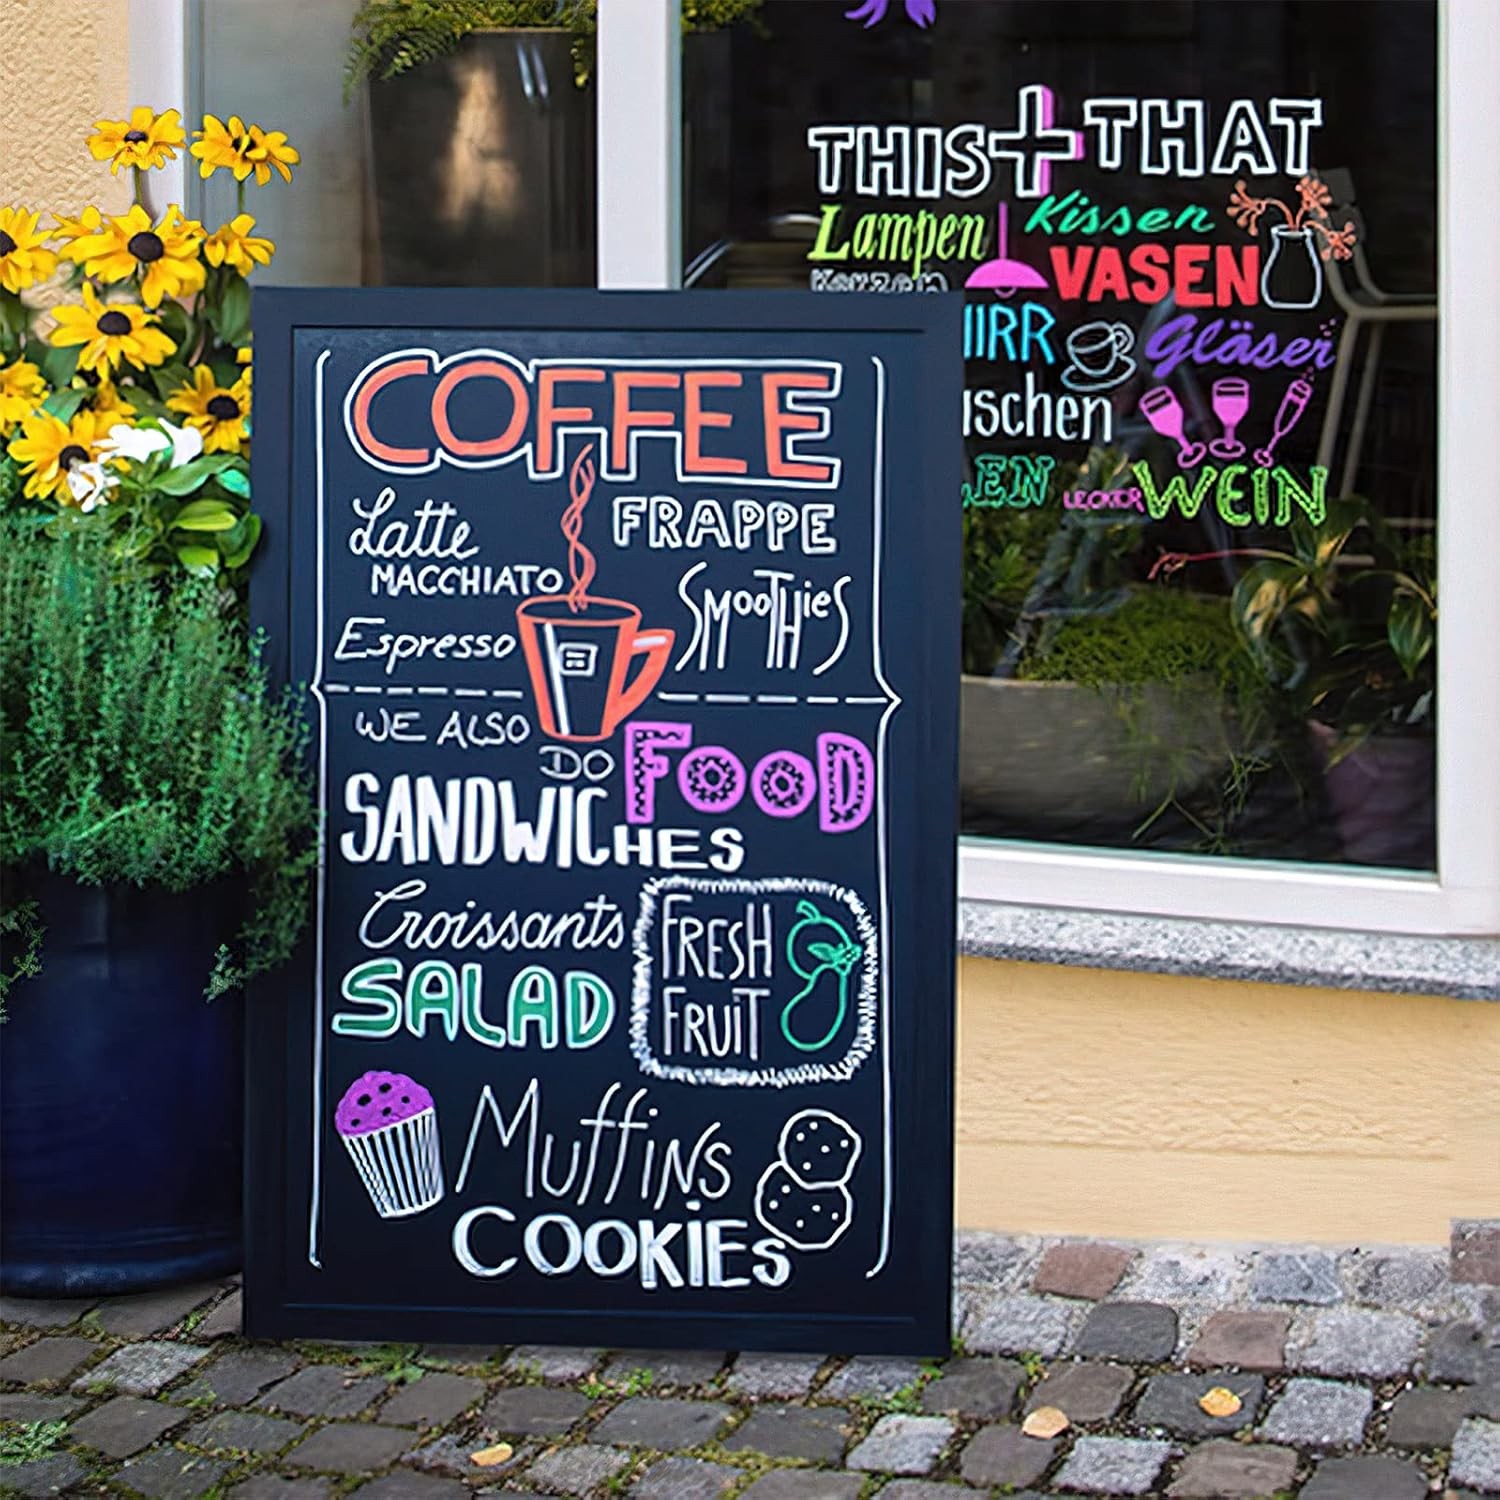 THIS + THAT
Lampen Kissen
Kerzen VASEN
Gläser
LECKER WEIN
COFFEE
Latte
MACCHIATO
FRAPPE
Espresso
SMOOTHiES
WE ALSO
DO FOOD
SANDWICHES
Croissants
SALAD
FRESH
FRUiT
MuffiNS
COOKiEs